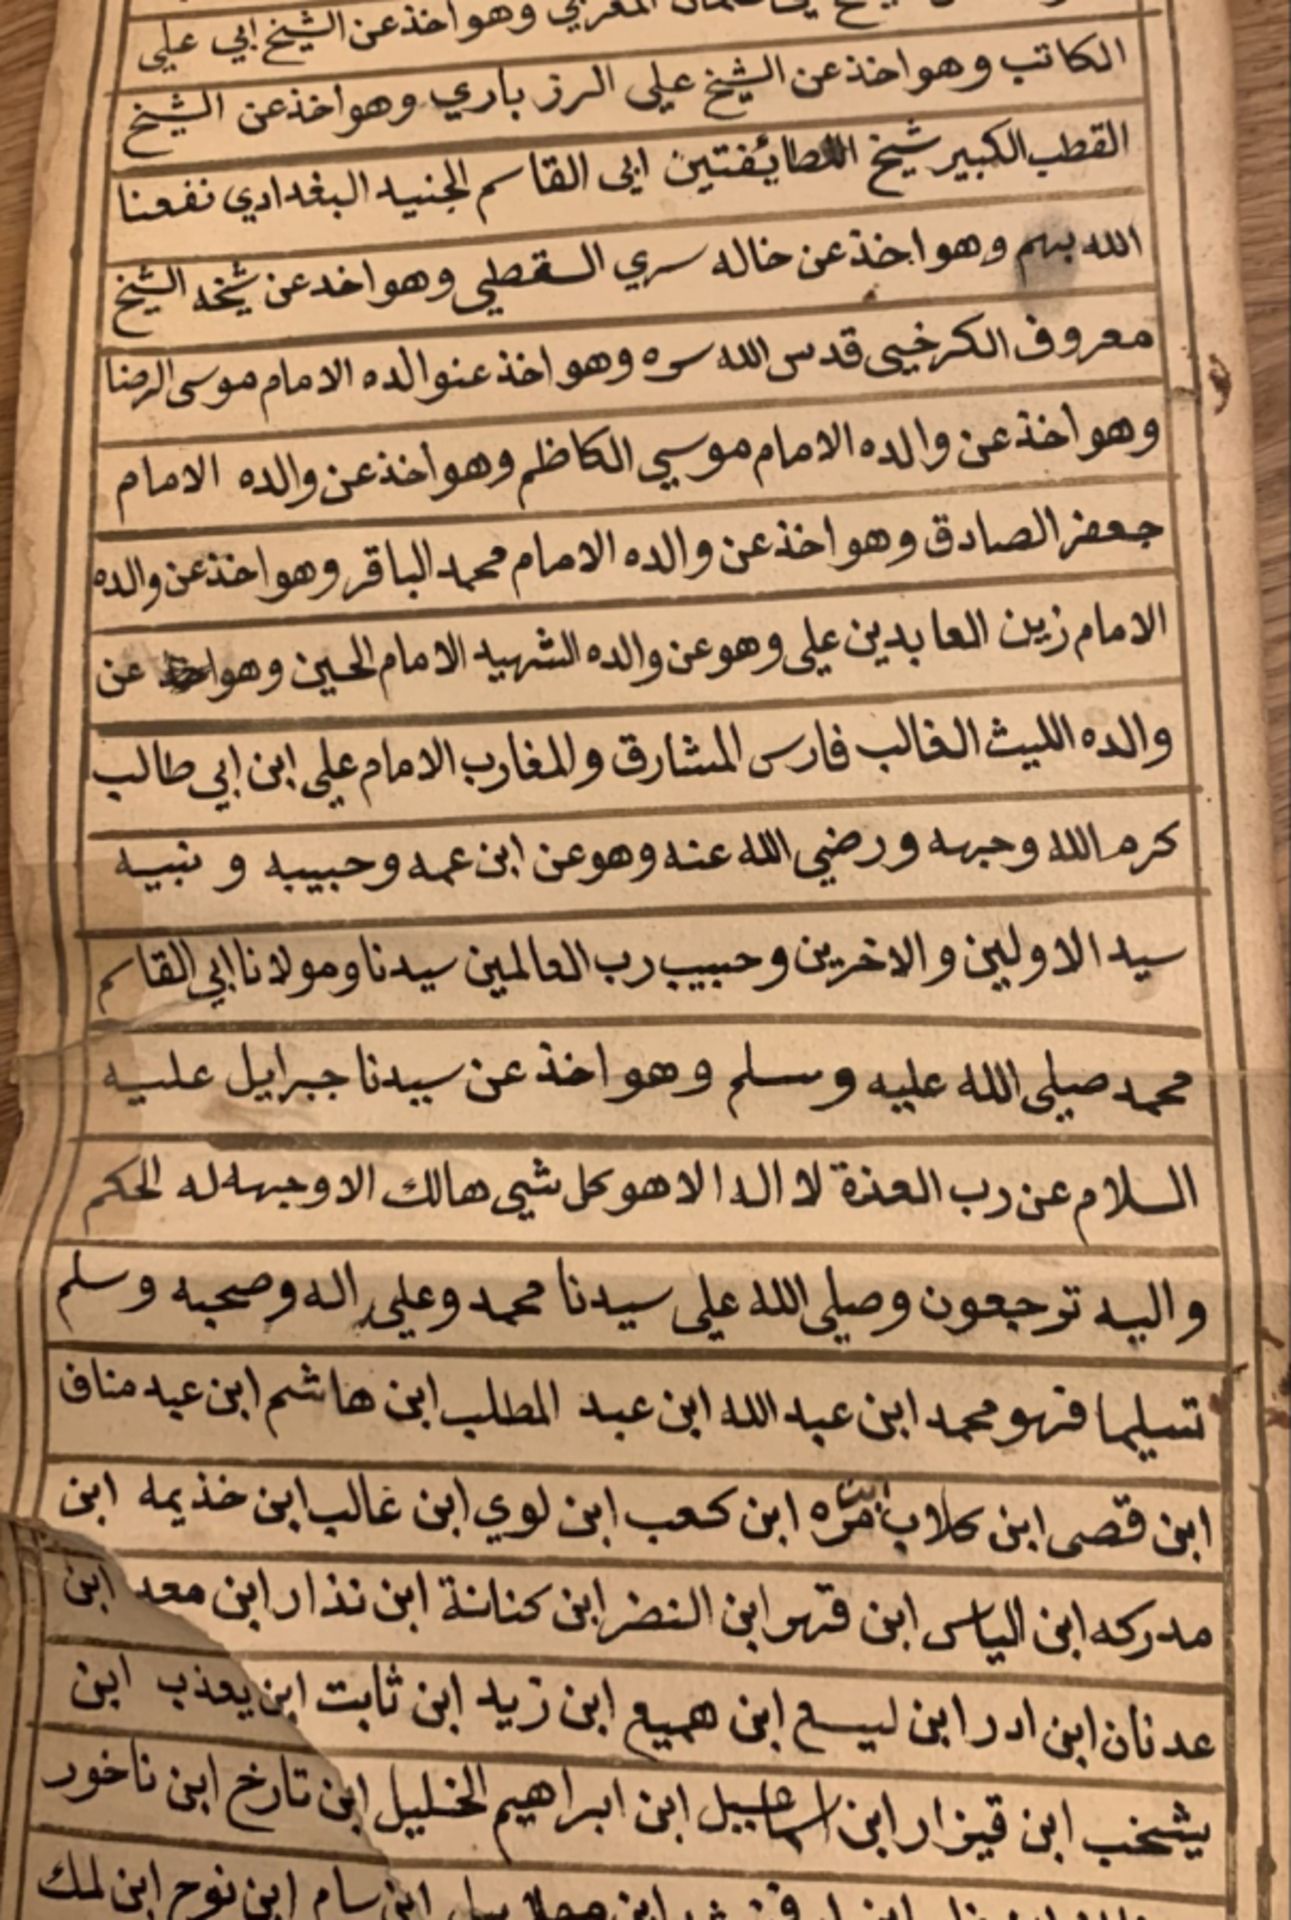 المغربي وهو اخذ عن الشيخ ابي علي
الكاتب وهو اخذ عن الشيخ علي الرز باري وهو اخذ عن الشيخ
القطب الكبير شيخ الطايُفتين ابي القاسم الجنيد البغدادي نفعنا
الله بهم وهو اخذ عن خاله سري السقطي وهو اخد عن شيخه الشيخ
معروف الكرخيي قدس الله سره وهو اخذ عنوالده الامام موسى الرضا
وهو اخذ عن والده الامام موسي الكاظم وهو اخذ عن والده الامام
جعفر الصادق وهو اخذ عن والده الامام محمد الباقر وهو اخذ عن والده
الامام زين العابدين علي وهو عن والده الشهيد الامام الحين وهو اخذ عن
والده الليث الغالب فارس المشارق والمغارب الامام علي ابن ابي طالب
كرم الله وجهه ورضي الله عنه وهو عن ابن عمه وحبيبه و نبيه
سيد الاولين والاخرين وحبيب رب العالمين سيدنا ومولانا ابي القاسم
محمد صلي الله عليه وسلم وهو اخذ عن سيدنا جبرايل عليه
السلام عن رب العذة لا اله الا هو كل شيي هالك الا وجهه له الحكم
واليه ترجعون وصلي الله علي سيدنا محمد وعلي اله وصحبه وسلم
تسليما فهو محمد ابن عبد الله ابن عبد المطلب ابن هاشم ابن عبد مناف
ابن قصى ابن كلاب ابن مره ابن كعب ابن لوي ابن غالب ابن خذيمه ابن
مدركه ابن الياس ابن قهر ابن النضر ابن كنانة ابن نذار ابن معد ابن
عدنان ابن ادر ابن ليسع ابن هميع ابن زيد ابن ثابت ابن يعذب ابن
يشخب ابن قيزار ابن اسماعيل ابن ابراهيم الخليل ابن تارخ ابن ناخور
ابن سام ابن نوح ابن لمك